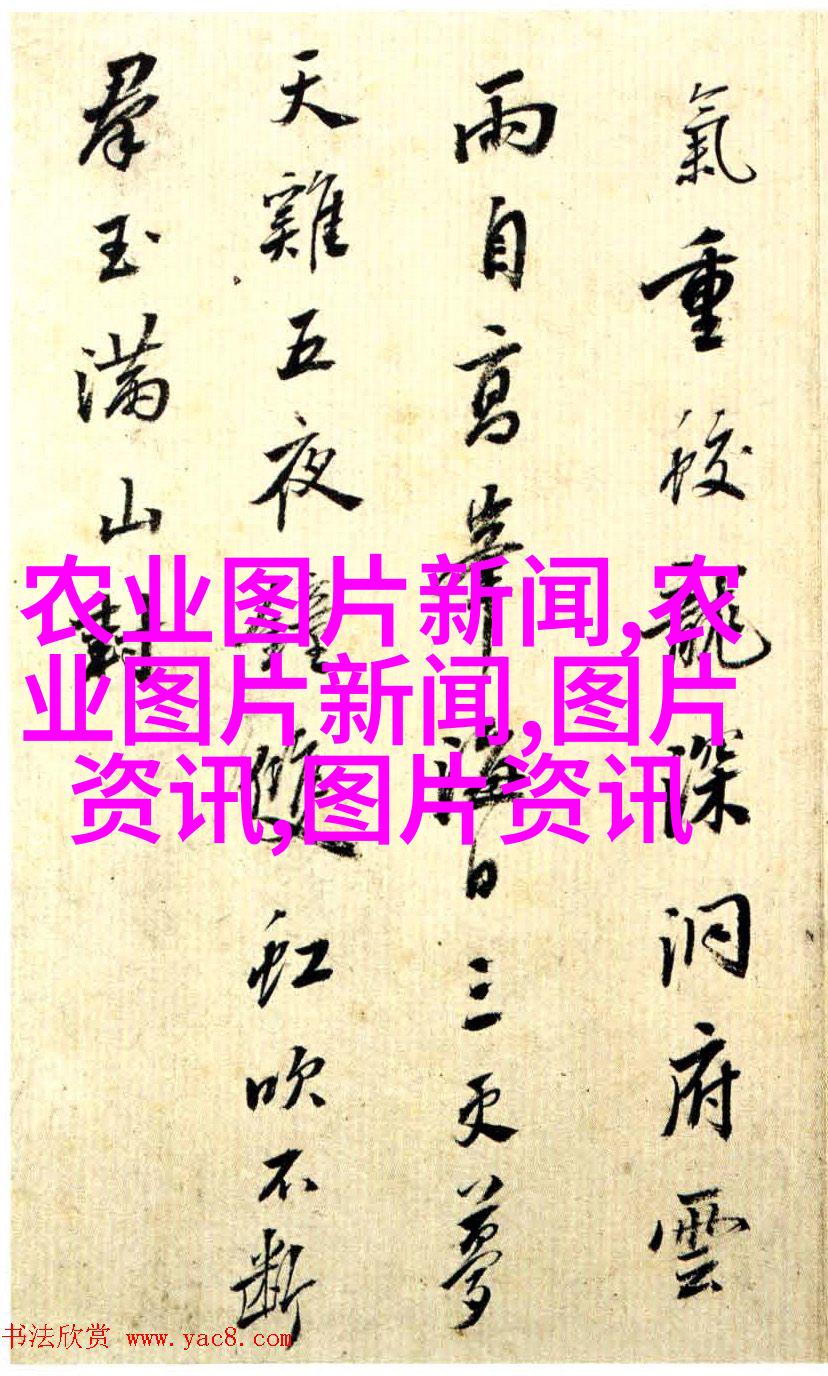 氣重蛟龍深洞府雲
雨自高峯海日三更夢
天雞五夜鐘虹吹不斷
羣玉滿山封
农业图片新闻,农
业图片新闻,图片
资讯,图片资讯
书法欣赏 www.yac8.com